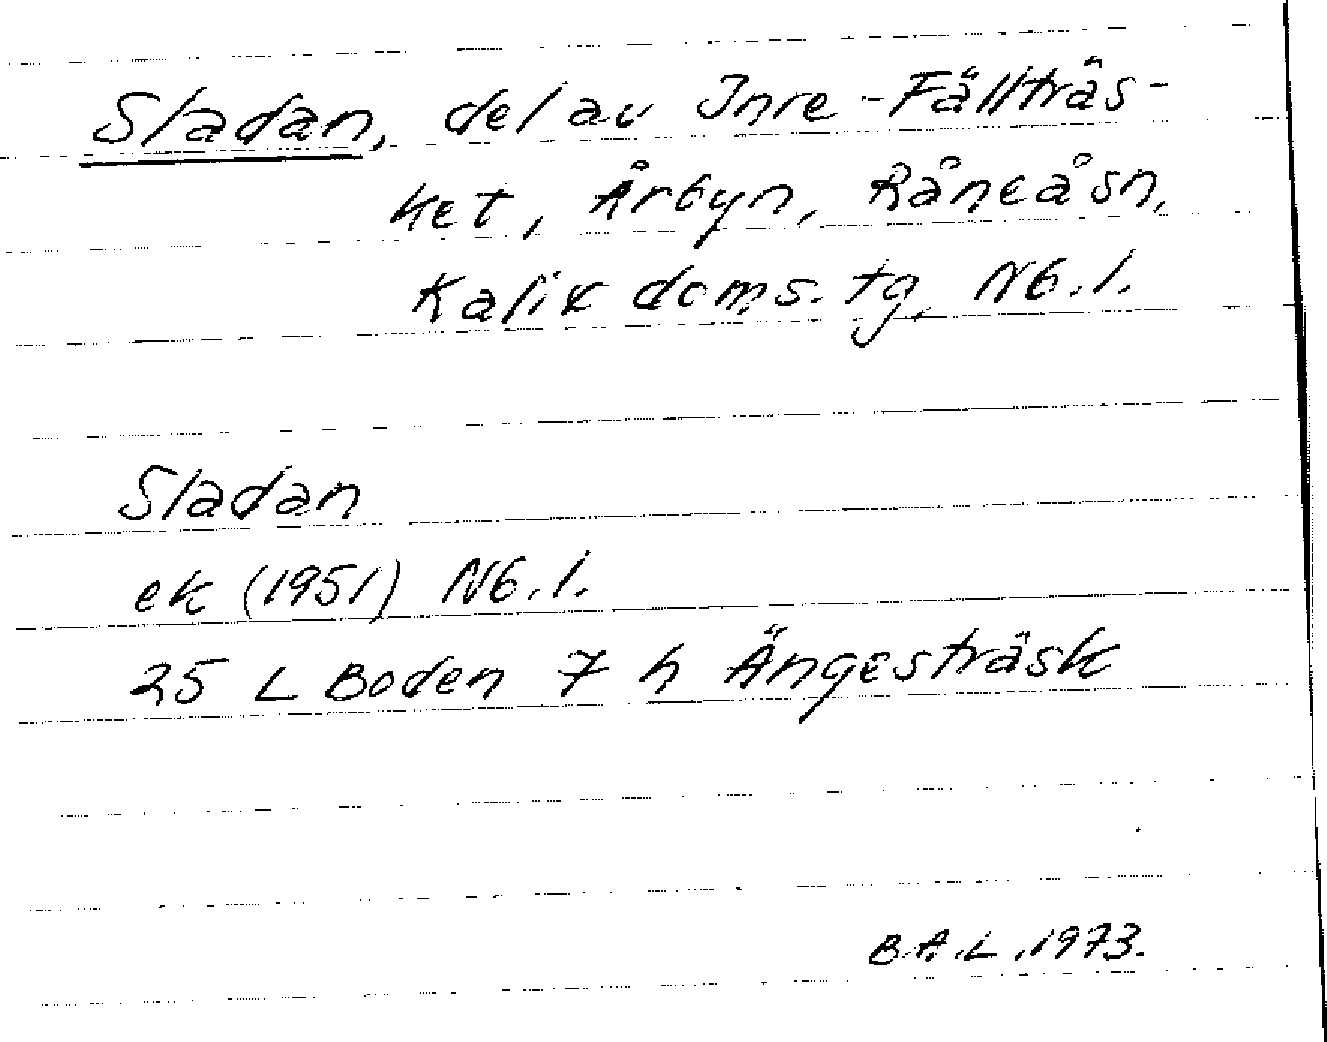 Sladan, del av Inre-Fällträs-
ket, Årbyn, Råneå sn,
Kalix doms. tg, Nb. l.
Sladan
ek (1951) Nb. l.
25 L Boden 7 h Ängesträsk
B.A.L. 1973.